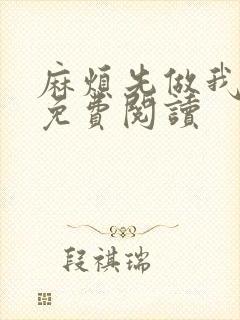 麻煩先做我
免費閱讀
段祺瑞